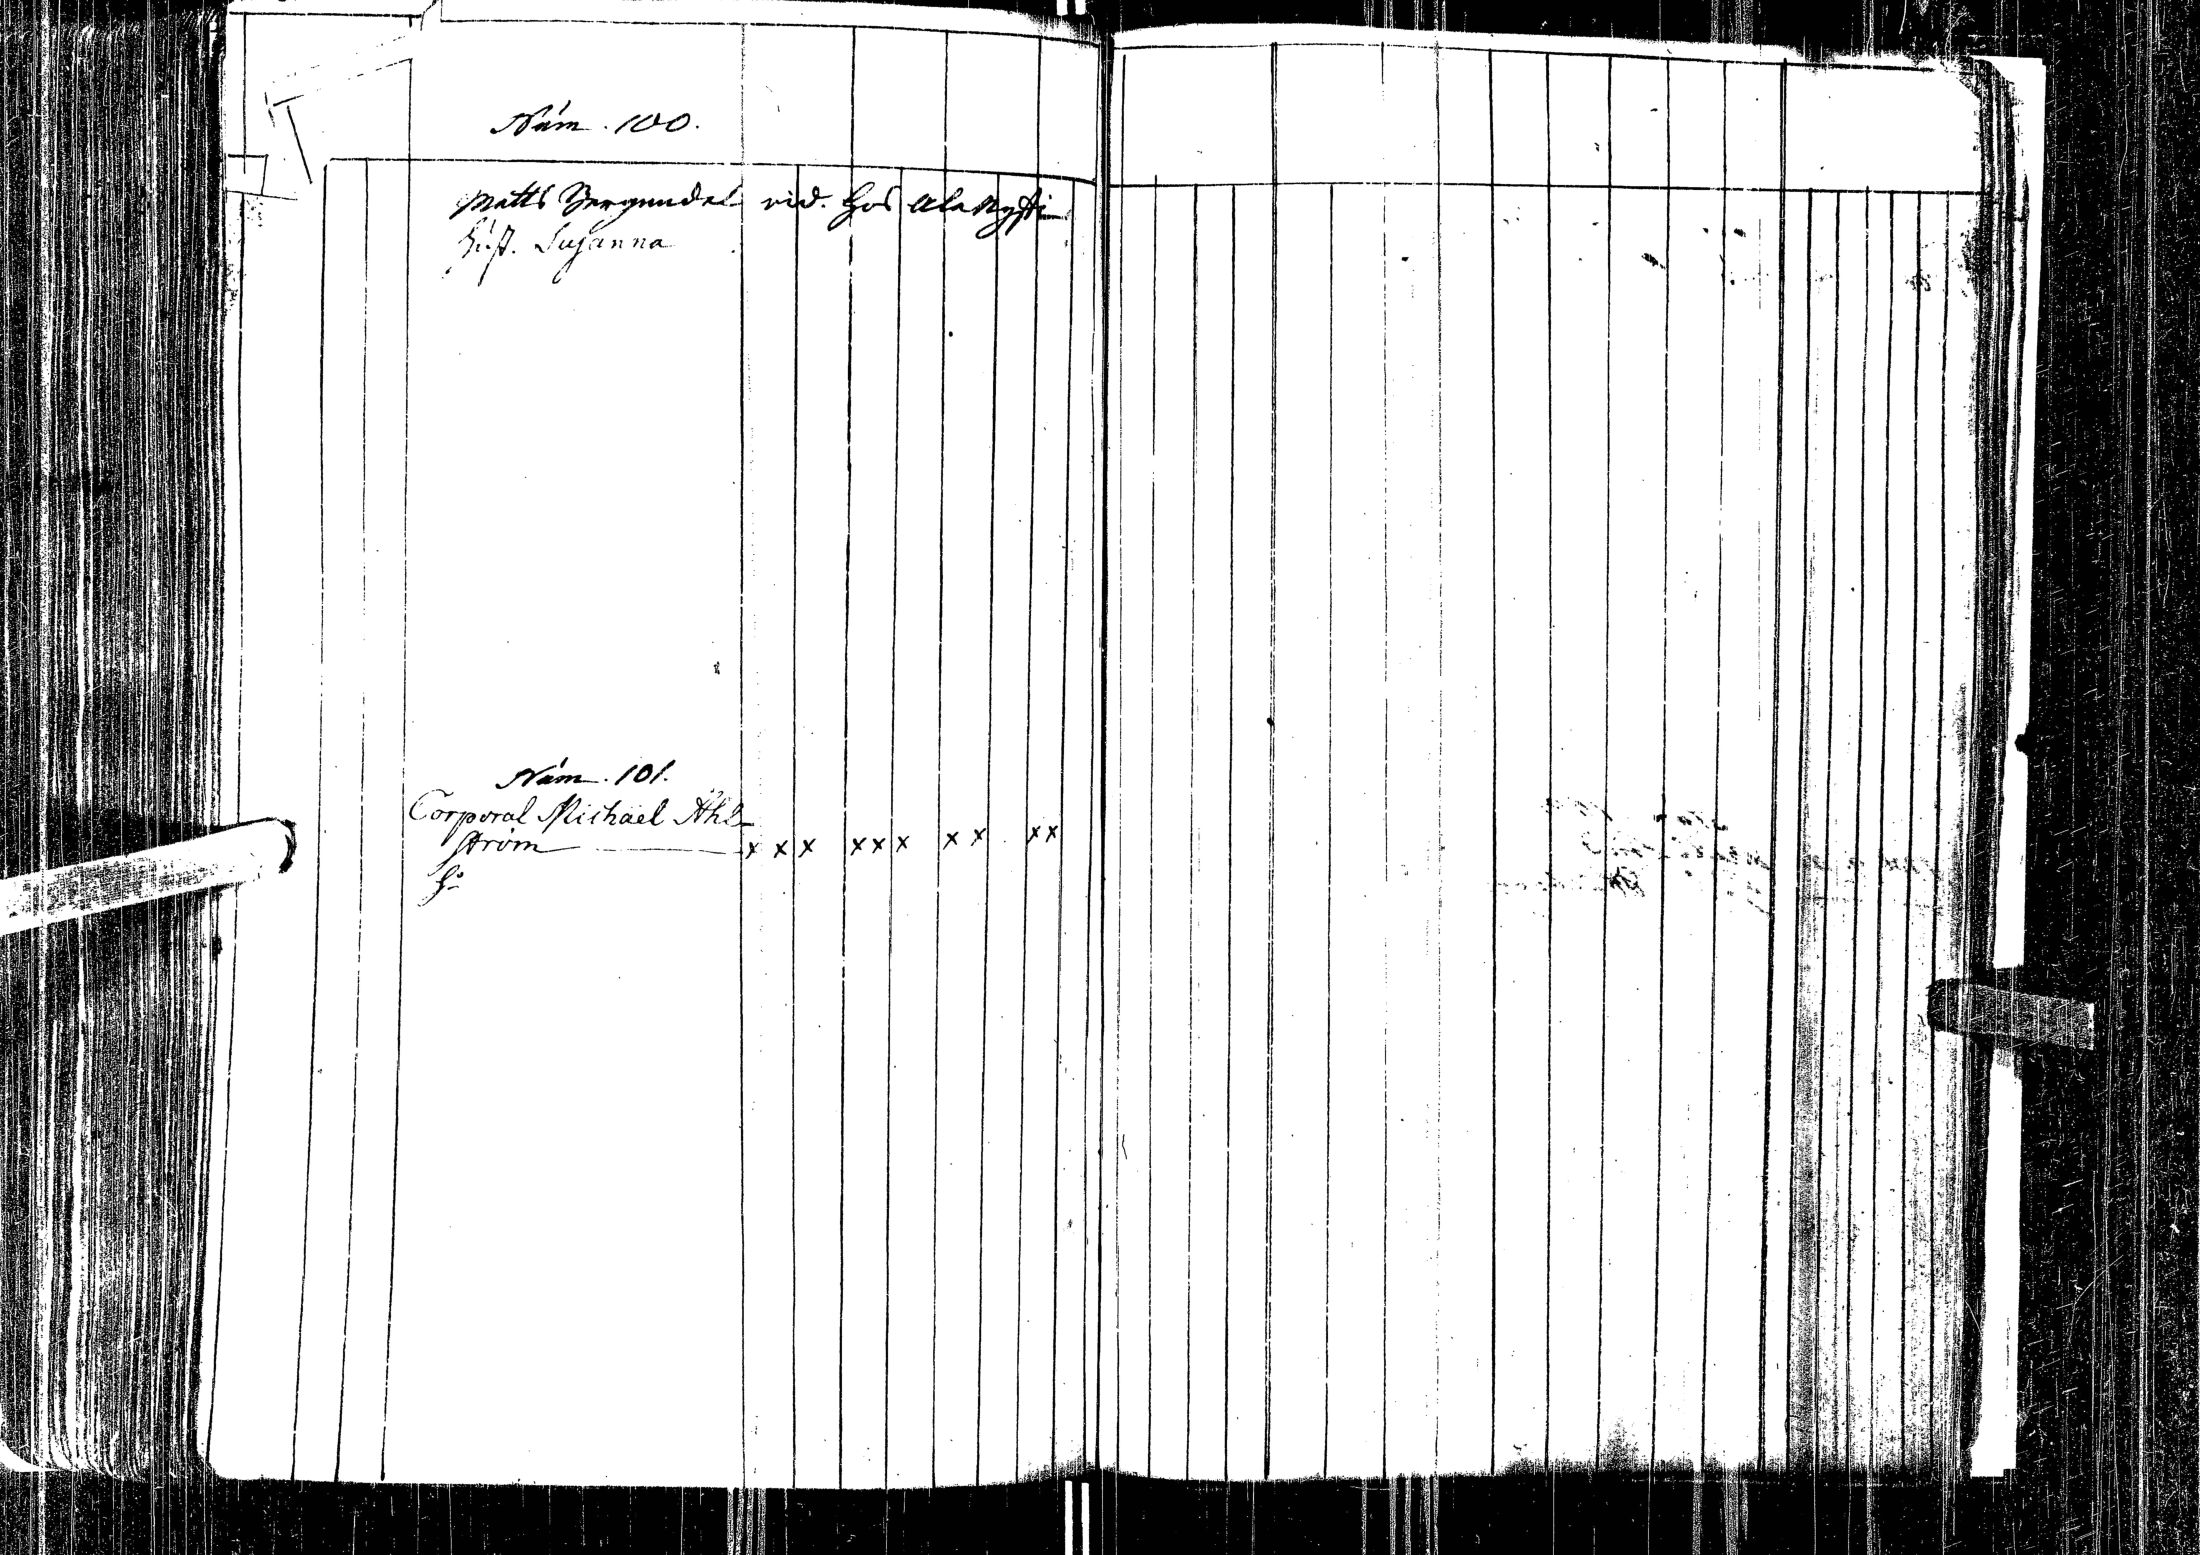 Núm. 100.
Matts Bergundel vid. hos Ala Kysti
Hust. Susanna
Núm. 101.
Corporal Michäel Åhl-
ström x x x x x x x x x x
H: